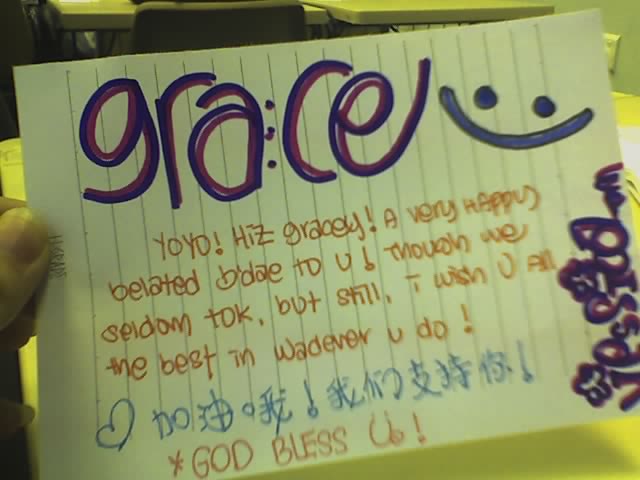 grace
YOYO! Hiz gracey! A very HAPPY
belated b'dae to u! though we
seldom tok, but still, i wish U All
the best in wadever u do!
加油哦!我们支持你!
*GOD BLESS Ub!
Jessica